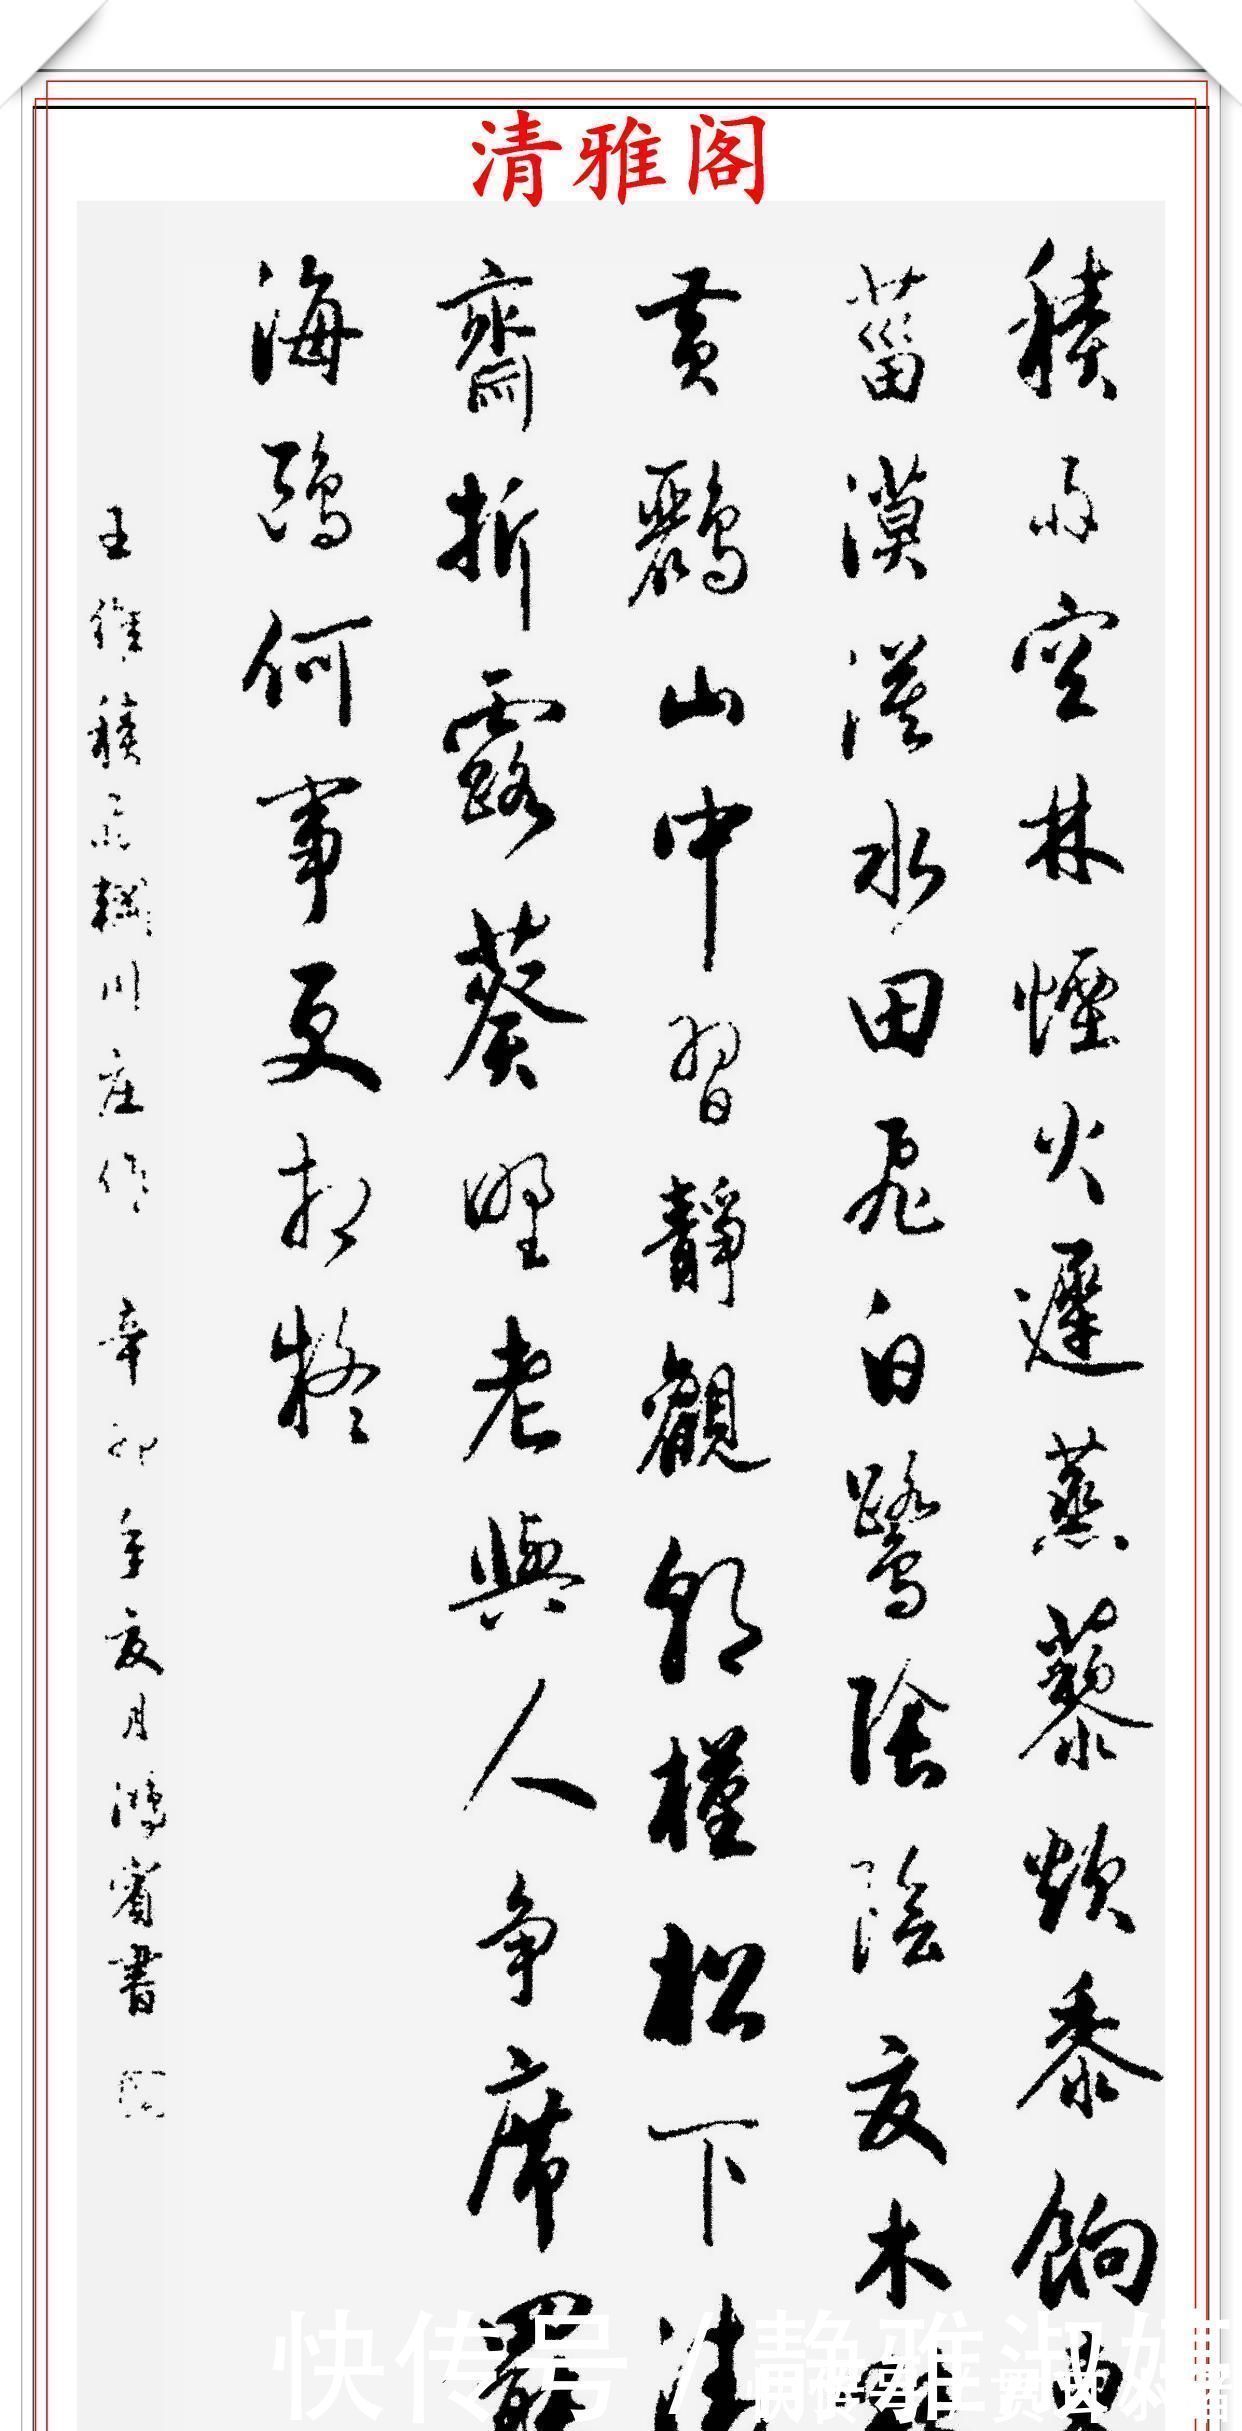 清雅阁
積雨空林煙火遲蒸藜炊黍餉東
菑漠漠水田飛白鷺陰陰夏木
黃鸝山中習靜觀朝槿松下清
齋折露葵野老與人争席罷
海鷗何事更相疑
王維積雨輞川庄作 辛卯年夏月鴻賓書
快传号 / 静雅淑娴